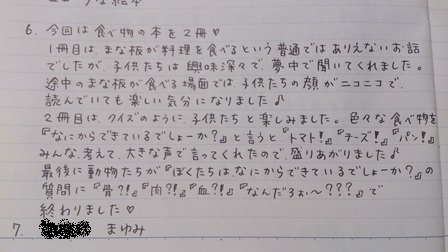 6. 今回は食べ物の本を2冊♡
1冊目は、まな板が料理を食べるという普通ではありえないお話
でしたが、子供たちは興味深々で、夢中で聞いてくれました。
途中のまな板が食べる場面では、子供たちの顔がニコニコで、
読んでいても楽しい気分になりました♪
2冊目は、クイズのように、子供たちと楽しみました。色々な食べ物を
『なにからできているでしょーか?』と言うと『トマト!』『チーズ!』『パン!』
みんな、考えて、大きな声で言ってくれたので、盛りあがりました♪
最後に動物たちが『ぼくたちはなにからできているでしょーか?』の
質問に『骨?!』『肉?!』『血?!』『なんだろぉ〜???』で
終わりました♡
7. まゆみ